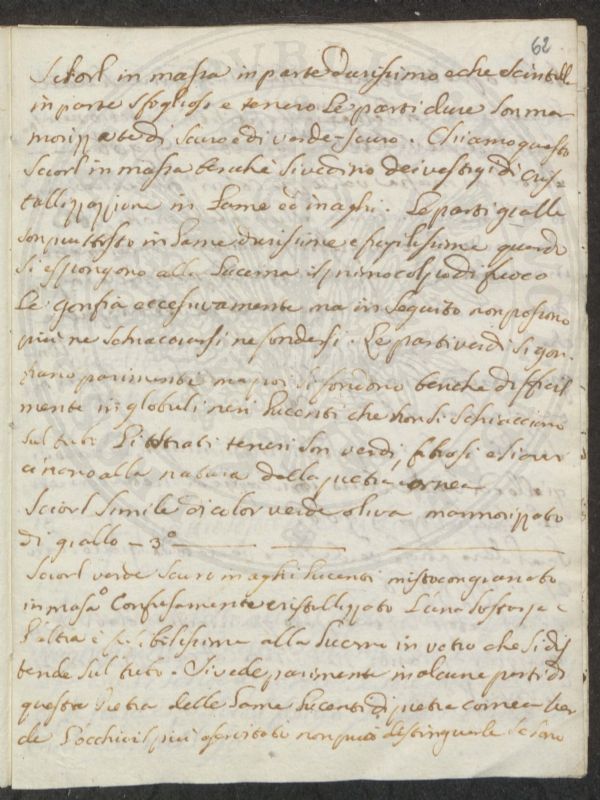 62
Sciorl in massa in parte durissimo e che scintille
in parte sfoglioso e tenero Le parti dure son mar
morizzate di scuro e di verde-scuro. Chiamo questo
Sciorl in massa benchè si vedino dei vestigi di Cris-
tallizzazzione in Lame ed in aghi. Le parti gialle
son piuttosto in Lame durissime e fragilissime quando
si espongono alla Lucerna il primo colpo di fuoco
Le gonfia eccessivamente ma in seguito non possono
più ne schiacciarsi ne fondersi. Le parti verdi si gon-
fiano parimente ma poi si fondono benche difficil
mente in globuli neri Lucenti che non si schiacciano
sul tubo Li strati teneri son verdi, fibrosi e si avvi
cinano alla natura della pietra cornea
Sciorl simile di color verde oliva marmorizzato
di giallo - 3°
Sciorl verde scuro in aghi Lucenti misto con granato
in massa Confusamente cristallizzato L'una sostanza e
l'altra è fusibilissima alla Lucerna in vetro che si dis
tende sul tubo. Si vede parimente in alcune parti di
questa Pietra delle Lame Lucenti di pietra cornea ver
de L'occhio il più esercitato non può distinguerle